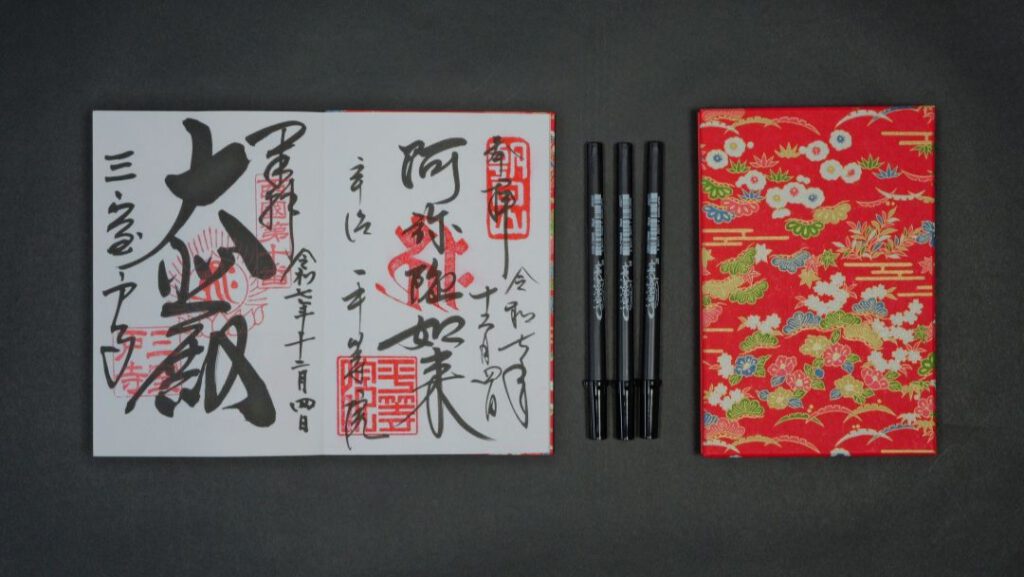 朝日山
奉拝
令和七年
十二月四日
阿弥陀如来
宇治 平等院
奉拝
令和七年十二月四日
大悲殿
三室戸寺